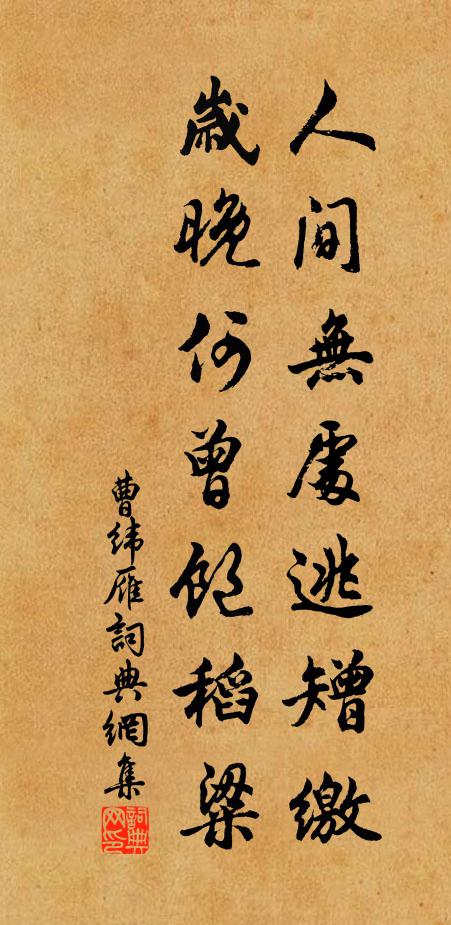 人間無處逃矰繳
歲晚何曾飽稻粱
曹緯雁詞典網集
詞典网印